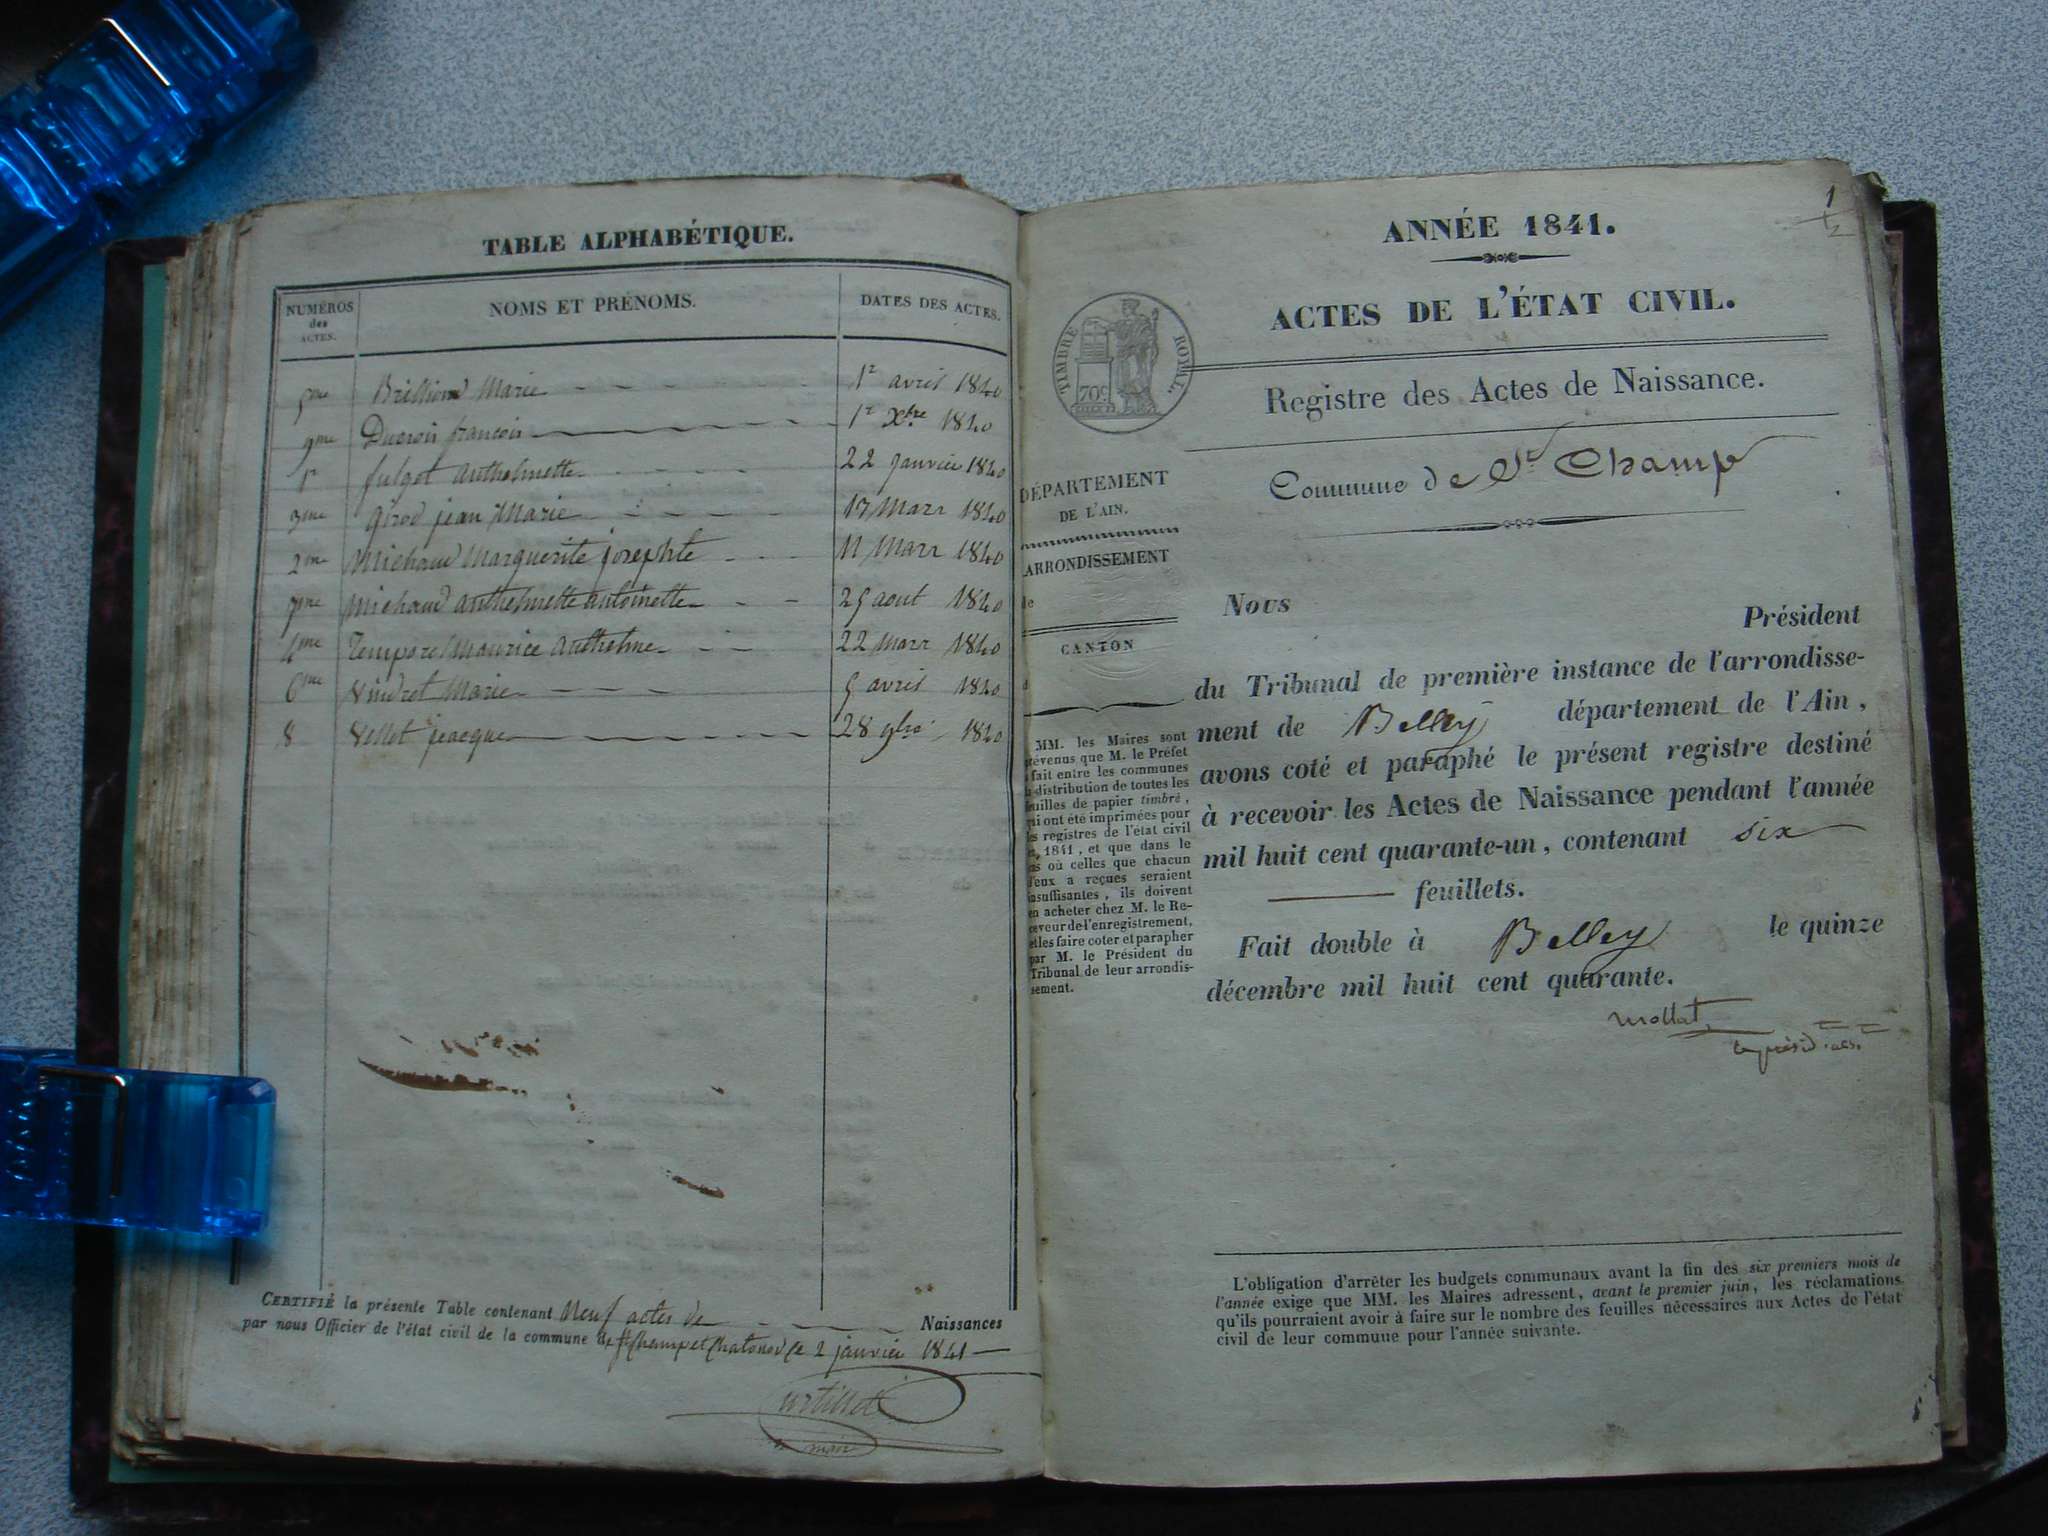 TABLE ALPHABÉTIQUE.
NUMÉROS
des
ACTES.
NOMS ET PRÉNOMS.
DATES DES ACTES.
5me Marie 1r avril 1840
9me Ducroix françois 1r Xbre 1840
1r fulgot anthelmette 22 janvier 1840
3me girod jean Marie 17 Mars 1840
2me Michaud Marguerite josephte 11 Mars 1840
7me Michaud anthelmette antoinette 29 aout 1840
4me Maurice anthelme 22 mars 1840
6me Vindret Marie 9 avril 1840
8 Vellet jacque 28 9bre 1840
CERTIFIÉ la présente Table contenant Neuf actes de Naissances
par nous Officier de l'état civil de la commune de St Champ et Chatonod le 2 janvier 1841
maire
1
2
ANNÉE 1841.
ACTES DE L'ÉTAT CIVIL.
TIMBRE ROYAL.
70c
Registre des Actes de Naissance.
Commune de St Champ
DÉPARTEMENT
DE L'AIN.
ARRONDISSEMENT
de
CANTON
d
MM. les Maires sont
prévenus que M. le Préfet
a fait entre les communes
la distribution de toutes les
feuilles de papier timbré,
qui ont été imprimées pour
les registres de l'état civil
1841, et que dans le
cas où celles que chacun
d'eux a reçues seraient
insuffisantes, ils doivent
en acheter chez M. le Re-
ceveur de l'enregistrement,
et les faire coter et parapher
par M. le Président du
Tribunal de leur arrondis-
sement.
Nous Président
du Tribunal de première instance de l'arrondisse-
ment de Belley département de l'Ain,
avons coté et paraphé le présent registre destiné
à recevoir les Actes de Naissance pendant l'année
mil huit cent quarante-un, contenant six
feuillets.
Fait double à Belley le quinze
décembre mil huit cent quarante.
mollat
L'obligation d'arrêter les budgets communaux avant la fin des six premiers mois de
l'année exige que MM. les Maires adressent, avant le premier juin, les réclamations
qu'ils pourraient avoir à faire sur le nombre des feuilles nécessaires aux Actes de l'état
civil de leur commune pour l'année suivante.